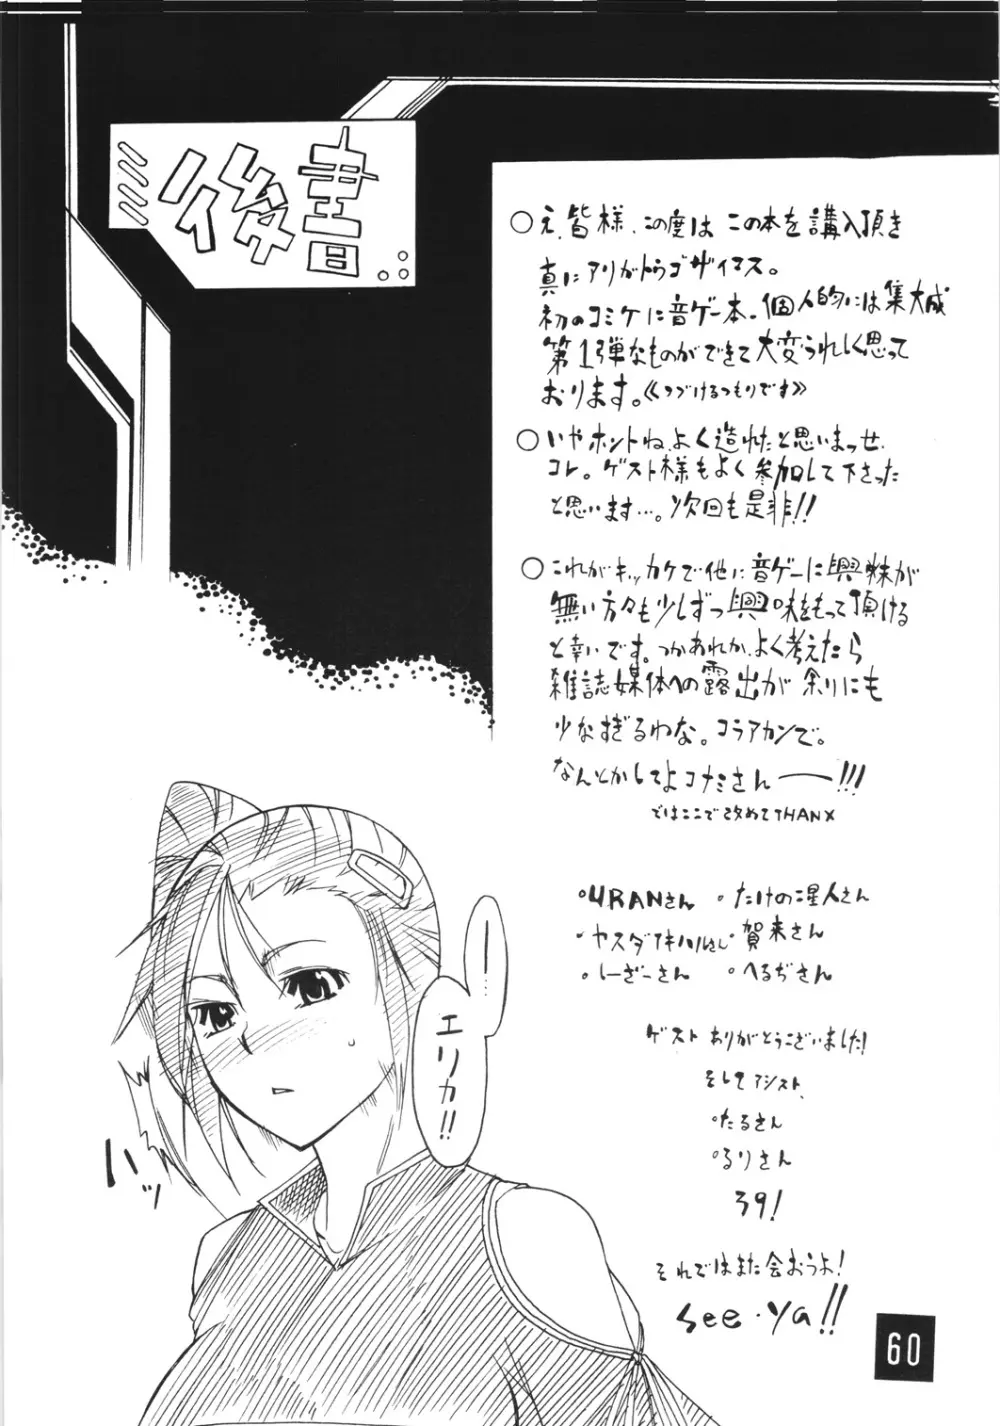 後書
○え、皆様、この度はこの本を講入頂き
真にアリガトウゴザイマス。
初のコミケに音ゲー本。個人的には集大成
第1弾なものができて大変うれしく思って
おります。《つづけるつもりです》
○いやホントね、よく造れたと思いまっせ、
コレ。ゲスト様もよく参加して下さった
と思います…。次回も是非!!
○これがキッカケで他に音ゲーに興味が
無い方々も少しずつ興味をもって頂ける
と幸いです。つかあれか、よく考えたら
雑誌媒体への露出が余りにも
少なすぎるわな。コラアカンで。
なんとかしてよコナミさんー!!!
ではここで改めてTHANX
・URANさん ・たけの星人さん
・ヤスダアキハルさん ・賀来さん
・しーざーさん ・へるぢさん
ゲストありがとうございました!
そしてアシスト、
・たるさん
・るりさん
39!
それではまた会おうよ!
see・ya!!
ー、
エリカ!!
ハッ
60